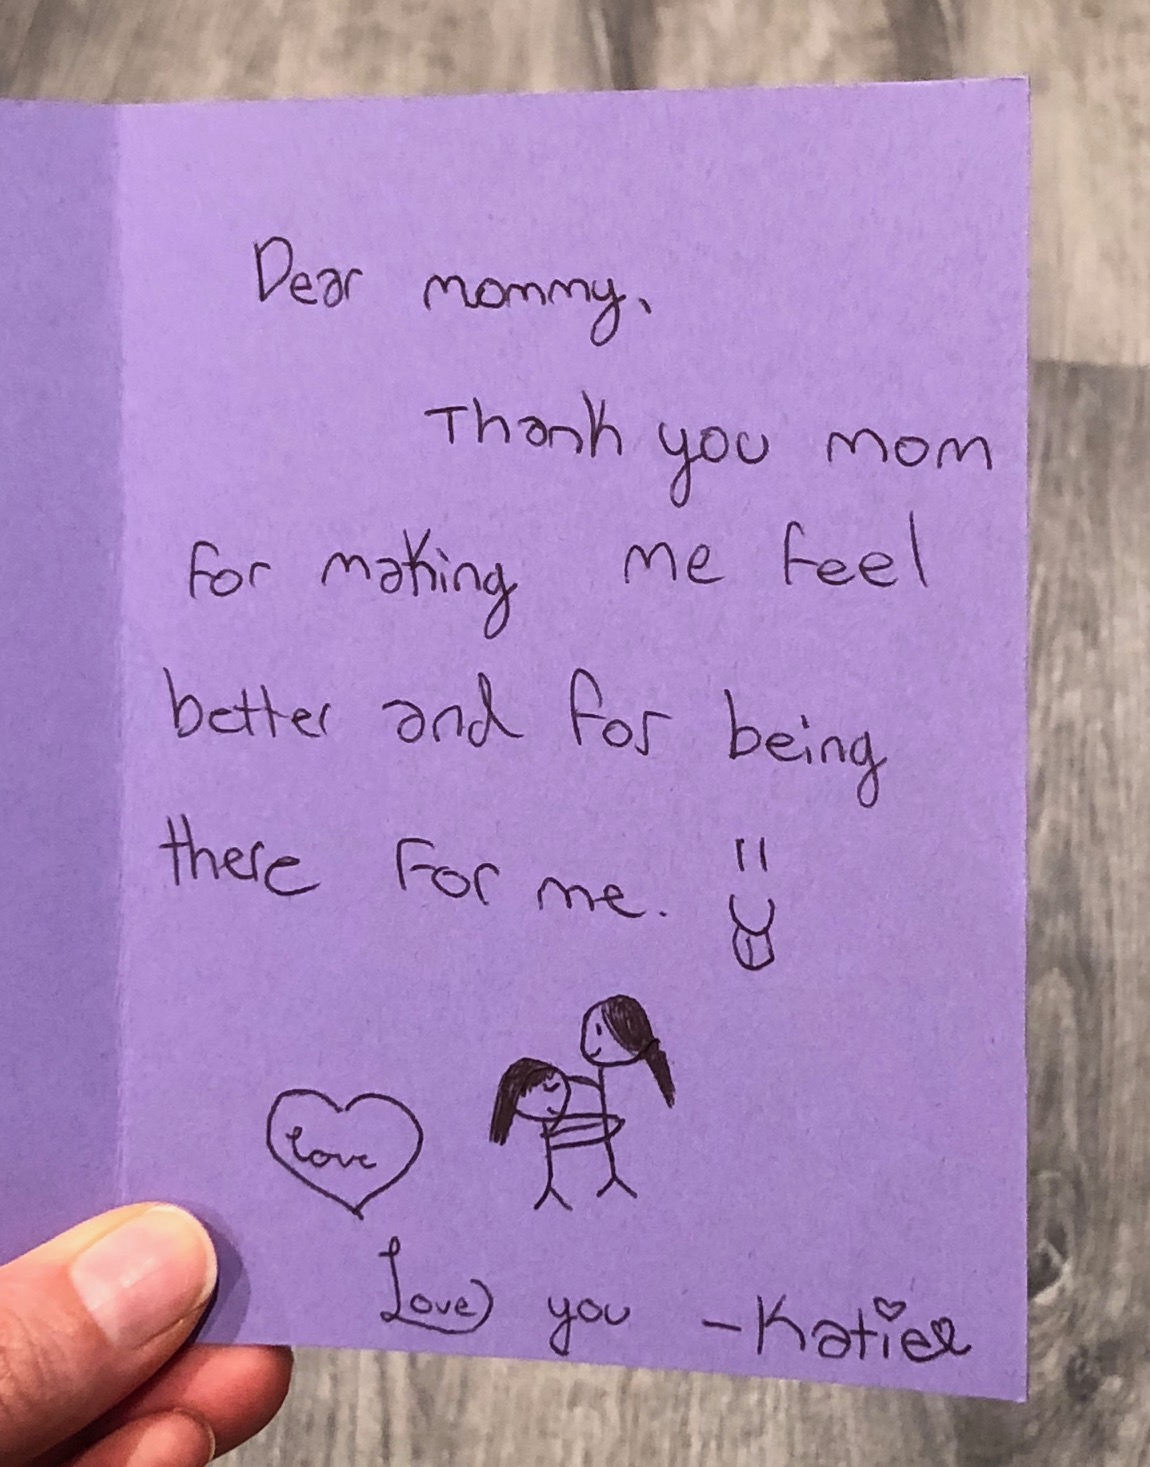 Dear mommy,
Thank you mom
for making me feel
better and for being
there for me.
love
Love you -Katie